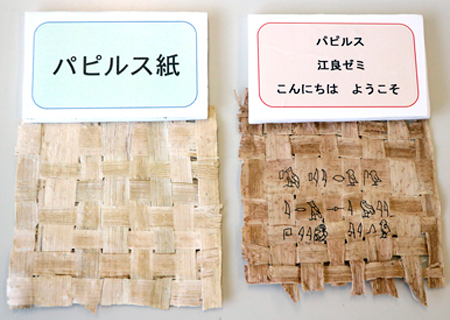 パピルス紙
パピルス
江良ゼミ
こんにちは　ようこそ